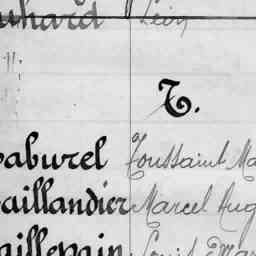 uhard Léon
T.
aburel Toussaint Ma
aillandier Marcel Aug
aillepain Louis Mar